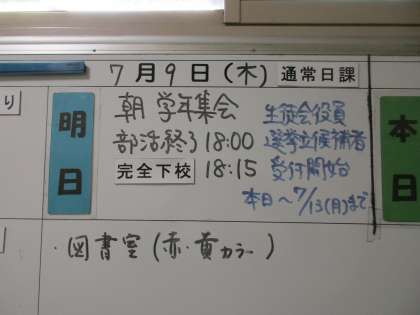 7月9日(木) 通常日課
り
明日
朝 学年集会
部活終了 18:00
完全下校 18:15
生徒会役員
選挙立候補者
受付開始
本日～7/13(月)まで
本日
・図書室(赤・黄カラー)